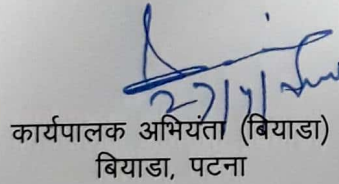 कार्यपालक अभियंता (बियाडा)
बियाडा, पटना